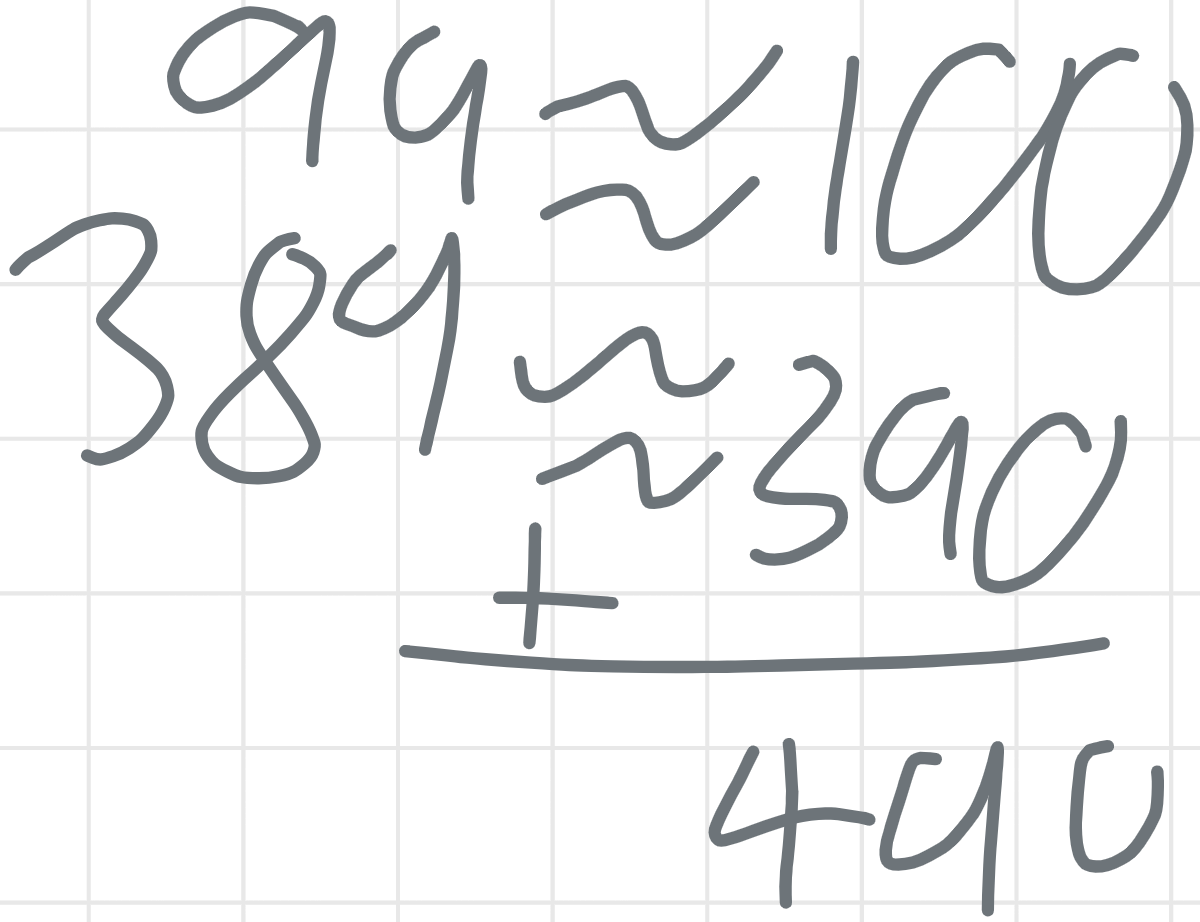 99 ≈ 100
389 ≈ ≈ 390
+
490